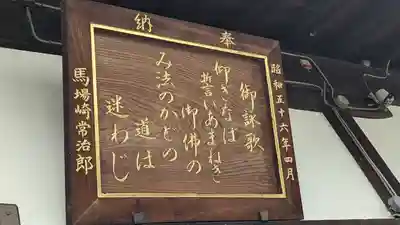 奉納
昭和五十六年四月
御詠歌
仰きなば
誓いあまねき
御佛の
み法のかどの
道は
迷わじ
馬場崎常治郎